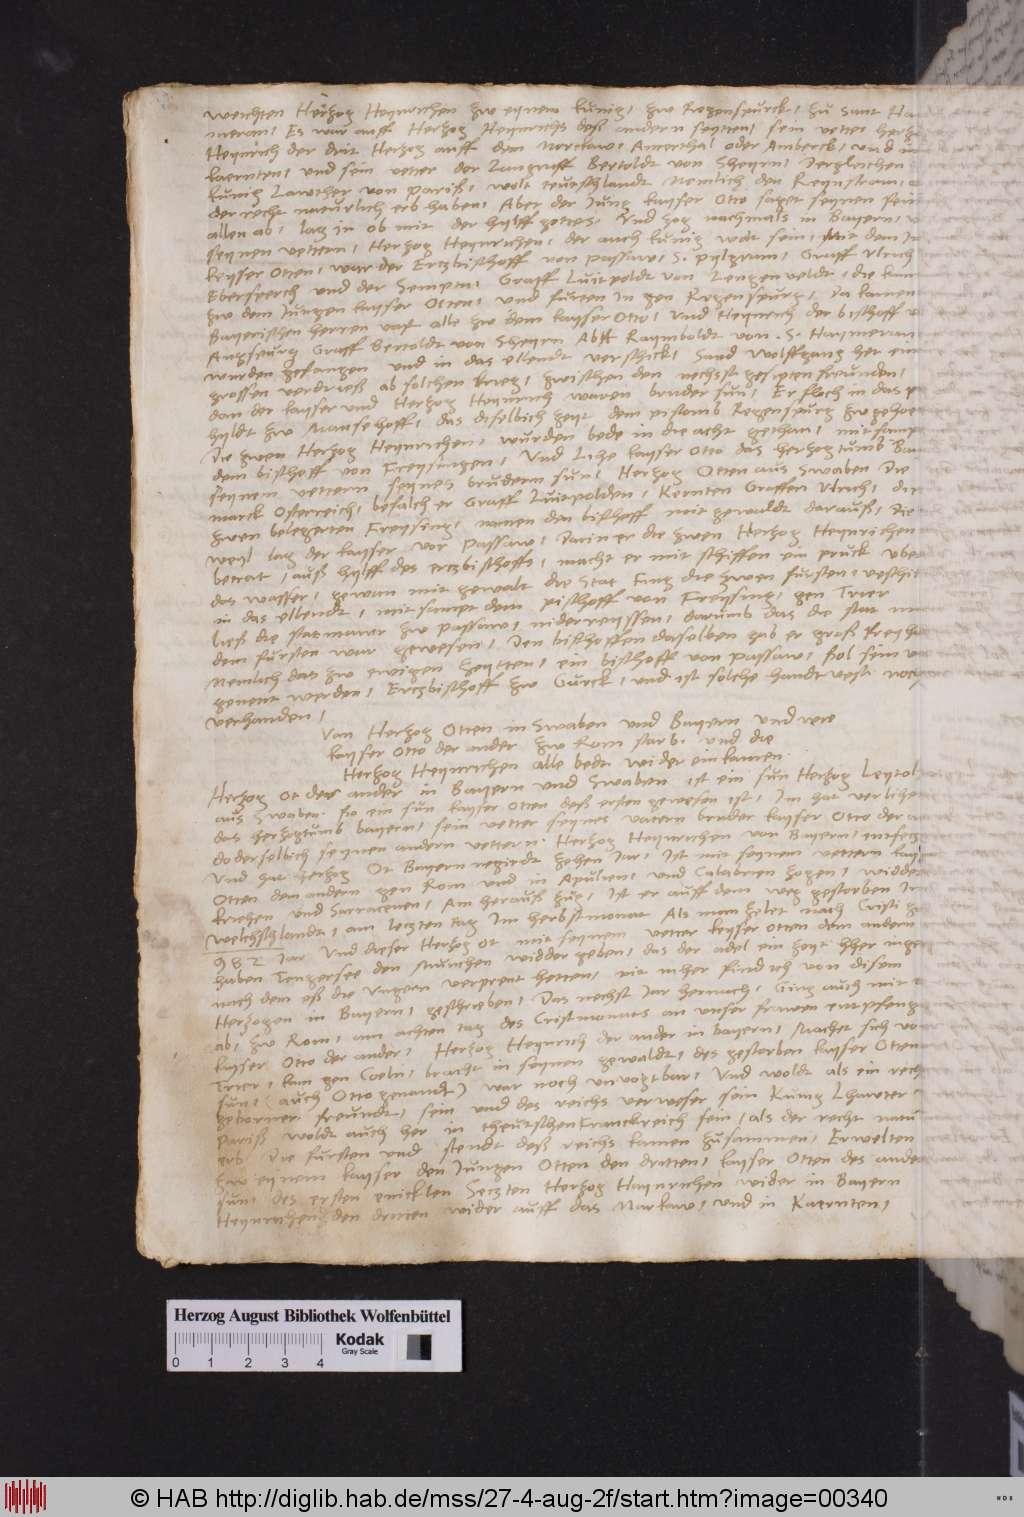 weichten Herzog Heynrichen zw eynem kunig, zw Regenspurck, zu Sant Ha
meran, Es war auff Herzog Heynrichs deß andern seytten, sein vetter herz
Heynrich der drit Herzog auff dem Norckaw, Amerthal oder Amberck, vnd in
kaernten, vnd sein vetter der Langraff Bertoldt von Sheyrn, Dergleichen
kunig Lawther von Pariß, wolt teutschlandt Nemlich den Reynstram,
der recht naturlich erb haben, Aber der Jung kayser Otto saget seynen fein
allen ab, lag in ob mit der hylff gottes, Vnd zog nachmals in Bayern,
seynen vettern, Herzog Heynrichen, der auch kunig wolt sein, Mit dem Ju
keyser Otten, war der Ertzbisthoff von passaw, S. pylgram, Graff Vlrich
Ebersperch vnd der Sempta, Graff Luitpoldt von Lengenveldt, die kam
zw dem Jungen kayser Otten, vnd fureten In gen Regenspurg, Da kamen
Bayerischen herren vast alle zw dem kaysser Otto, vnd Heynrich der bisthoff v
Augspurg Graff Bertoldt von Sheyrn Abtt Raymboldt von S. Haymeran
wurden gefangen vnd in das ellendt verschickt, Sand Wolffgang het ein
grossen verdrieß ab solchen krieg, zwischen den nechst gesipten freunden,
dan der kayser vnd Herzog Heynrich waren bruder sun, Er floch in das
hyldt zw Mansehoff, das diselbich zeyt dem pistomb Regenspurg zwgehoe
Die zwen Herzog Heynrichen, wurden bede in die acht gethan, mit samp
dem bisthoff von Freysingen, Vnd Lihe kayser Otto das herzogtumb Bay
seynem vettern seynes brudern sun, Herzog Otten aus Swaben Die
marck Osterreich, befalch er Graff Luitpolden, Kernten Graffen Vlrich, die
zwen belegerten Freysing, namen den bisthoff mit gewaldt darauß, Die
weyl lag der kayser vor Passaw, Darin er die zwen Herzog Heynrichen
betrat, auß hylff des ertzbisthoffs, macht er mit schiffen ein pruck vbe
das wasser, gewan mit gewalt die Stat fing die zwen fursten, veschi
in das ellendt, mit sampt dem pisthoff von Freysing, gen Trier
ließ die statmawr zw passaw, niderreyssen, darumb das die stat
dem fursten war gewesen, Den bisthoffen daselben gab er groß freyh
Nemlich das zw ewigen zeytten, ein bisthoff von passaw, sol sein v
genent werden, Ertzbisthoff zw Gurck, vnd ist solche handtvest noch
verhanden,
Van Herzog Otten in Swaben vnd Bayern vnd wie
kayser Otto der ander zw Rom starb, vnd die
Herzog Heynrichen alle bede wider einkamen.
Herzog Ot der ander in Bayern vnd Swaben ist ein sun Herzog Leytol
aus Swaben, so ein sun kayser Otten deß ersten gewesen ist, Im hat verlihe
das herzogtumb bayern, sein vetter seynes vattern bruder kayser Otto der an
do derselbich seynen andern vettern, Herzog Heynrichen von Bayern, entsetzt
Vnd hat Herzog Ot Bayern regirdt zehen Jar, Ist mit seynem vettern kay
Otten dem andern gen Rom vnd in Apulien, vnd Calabrien zogen, widder
kriehen vnd Sarracenen, Am herauß zug, ist er auff dem weg gestorben In
Welchschlandt, am letzten tag Im herbstmonat Als man zelet nach Cristi g
982 Jar Vnd dieser Herzog Ot mit seynem vetter keyser otten dem andern
haben Tengersee den Munchen widdergeben, das der adel ein zeyt
nach dem eß die Vngern verprent hetten, nit mher find ich von disem
Herzogen in Bayern, geschrieben, Das nechst Jar hernach, Ging auch mit
ab, zw Rom, am achten tag des Cristmonats an vnser frawen empfeng
kayser Otto der ander, Herzog Heynrich der ander in bayern, Machet sich vo
Trier, kam gen Coeln, bracht in seynen gewaldt, des gestorben kayser Otten
sun, (auch Otto genandt) war noch vnvogtbar, Vnd woldt als ein rech
geborner freundt, sein vnd des reichs verweser sein Kunig Lhawter
Pariß woldt auch her in theutschen Franckreich sein, als der recht natu
erb Die fursten vnd stendt deß reichs kamen zusammen, Erwelten
zw eynem kayser den Jungen Otten den dritten, kayser Otten des ande
sun, des ersten enicklen Setzten Herzog Haynrichen wider in Bayern
Heynrichen den dritten wider auff das Narkaw, vnd in Kaernten,
Herzog August Bibliothek Wolfenbüttel
Kodak
Gray Scale
0 1 2 3 4
© HAB http://diglib.hab.de/mss/27-4-aug-2f/start.htm?image=00340